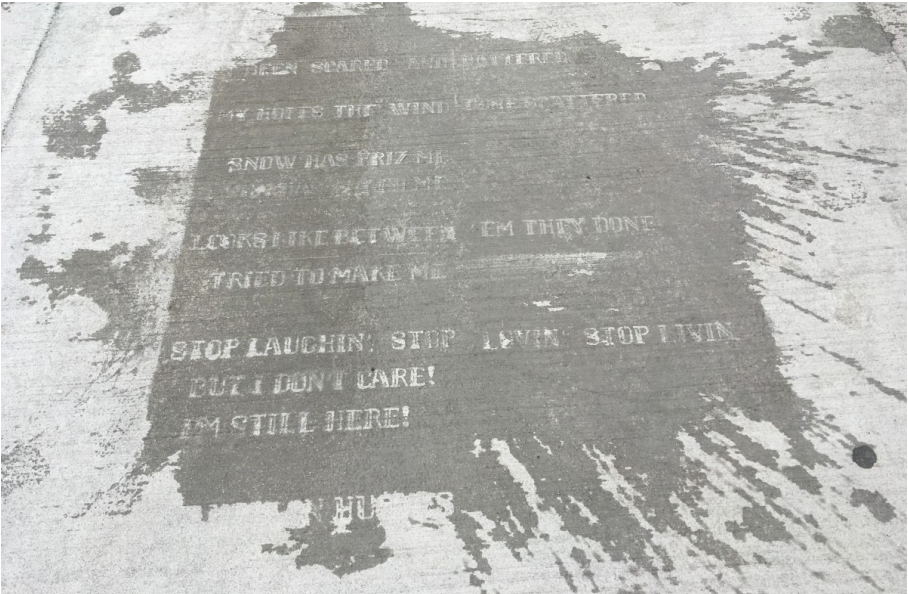 BEEN SCARED AND BATTERED
MY HOPES THE WIND DONE SCATTERED
SNOW HAS FRIZ ME
LOOKS LIKE BETWEEN 'EM THEY DONE
TRIED TO MAKE ME
STOP LAUGHIN', STOP LOVIN' STOP LIVIN
BUT I DON'T CARE!
I'M STILL HERE!
HUGHES